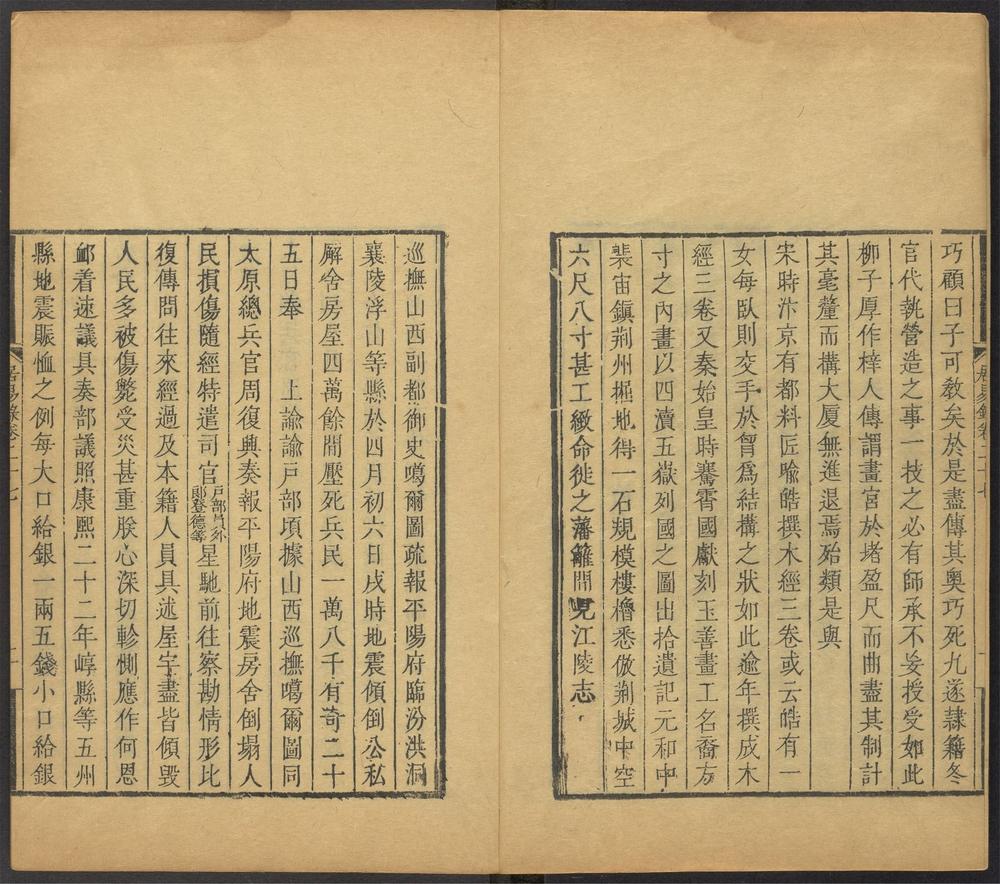 巧顧曰子可敎矣於是盡傳其奧巧死九遂隷籍冬
官代執營造之事一技之必有師承不妄授受如此
柳子厚作梓人傳謂畫宮於堵盈尺而曲盡其制計
其毫釐而構大厦無進退焉殆類是與
宋時汴京有都料匠喩皓撰木經三卷或云皓有一
女每臥則交手於胷爲結構之狀如此逾年撰成木
經三卷又秦始皇時騫霄國獻刻玉善畫工名裔方
寸之內畫以四瀆五嶽列國之圖出拾遺記元和中
裴宙鎭荆州掘地得一石規模樓櫓悉倣荆城中空
六尺八寸甚工緻命徙之藩籬間見江陵志
居易錄卷二十七
巡撫山西副都御史噶爾圖疏報平陽府臨汾洪洞
襄陵浮山等縣於四月初六日戌時地震傾倒公私
廨舍房屋四萬餘間壓死兵民一萬八千有奇二十
五日奉　上諭諭戸部頃據山西巡撫噶爾圖同
太原總兵官周復興奏報平陽府地震房舍倒塌人
民損傷隨經特遣司官戸部員外郞登德等星馳前往察勘情形比
復傳問往來經過及本籍人員具述屋宇盡皆傾毀
人民多被傷斃受災甚重朕心深切軫惻應作何恩
卹着速議具奏部議照康熙二十二年崞縣等五州
縣地震賑恤之例每大口給銀一兩五錢小口給銀
居易錄卷二十七